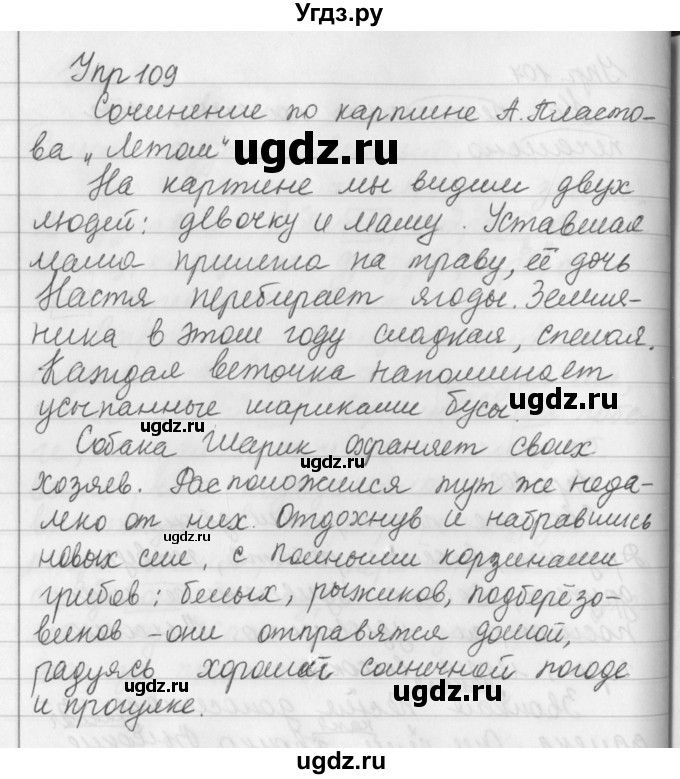 Угдз.ру
Упр 109
Сочинение по картине А. Пласто-
ва „Летом"
ugdz.ru
На картине мы видим двух
людей: девочку и маму. Уставшая
мама прилегла на траву, её дочь
Настя перебирает ягоды. Земля-
ника в этом году сладкая, спелая.
Каждая веточка напоминает
усыпанные шариками бусы.
ugdz.ru
ugdz.ru
Собака Шарик охраняет своих
ugdz.ru
хозяев. Расположился тут же неда-
леко от них. Отдохнув и набравшись
ugdz.ru
новых сил, с полными корзинами
грибов: белых, рыжиков, подберёзо-
виков - они отправятся домой,
радуясь хорошей солнечной погоде
ugdz.ru
ugdz.ru
и прогулке.
ugdz.ru